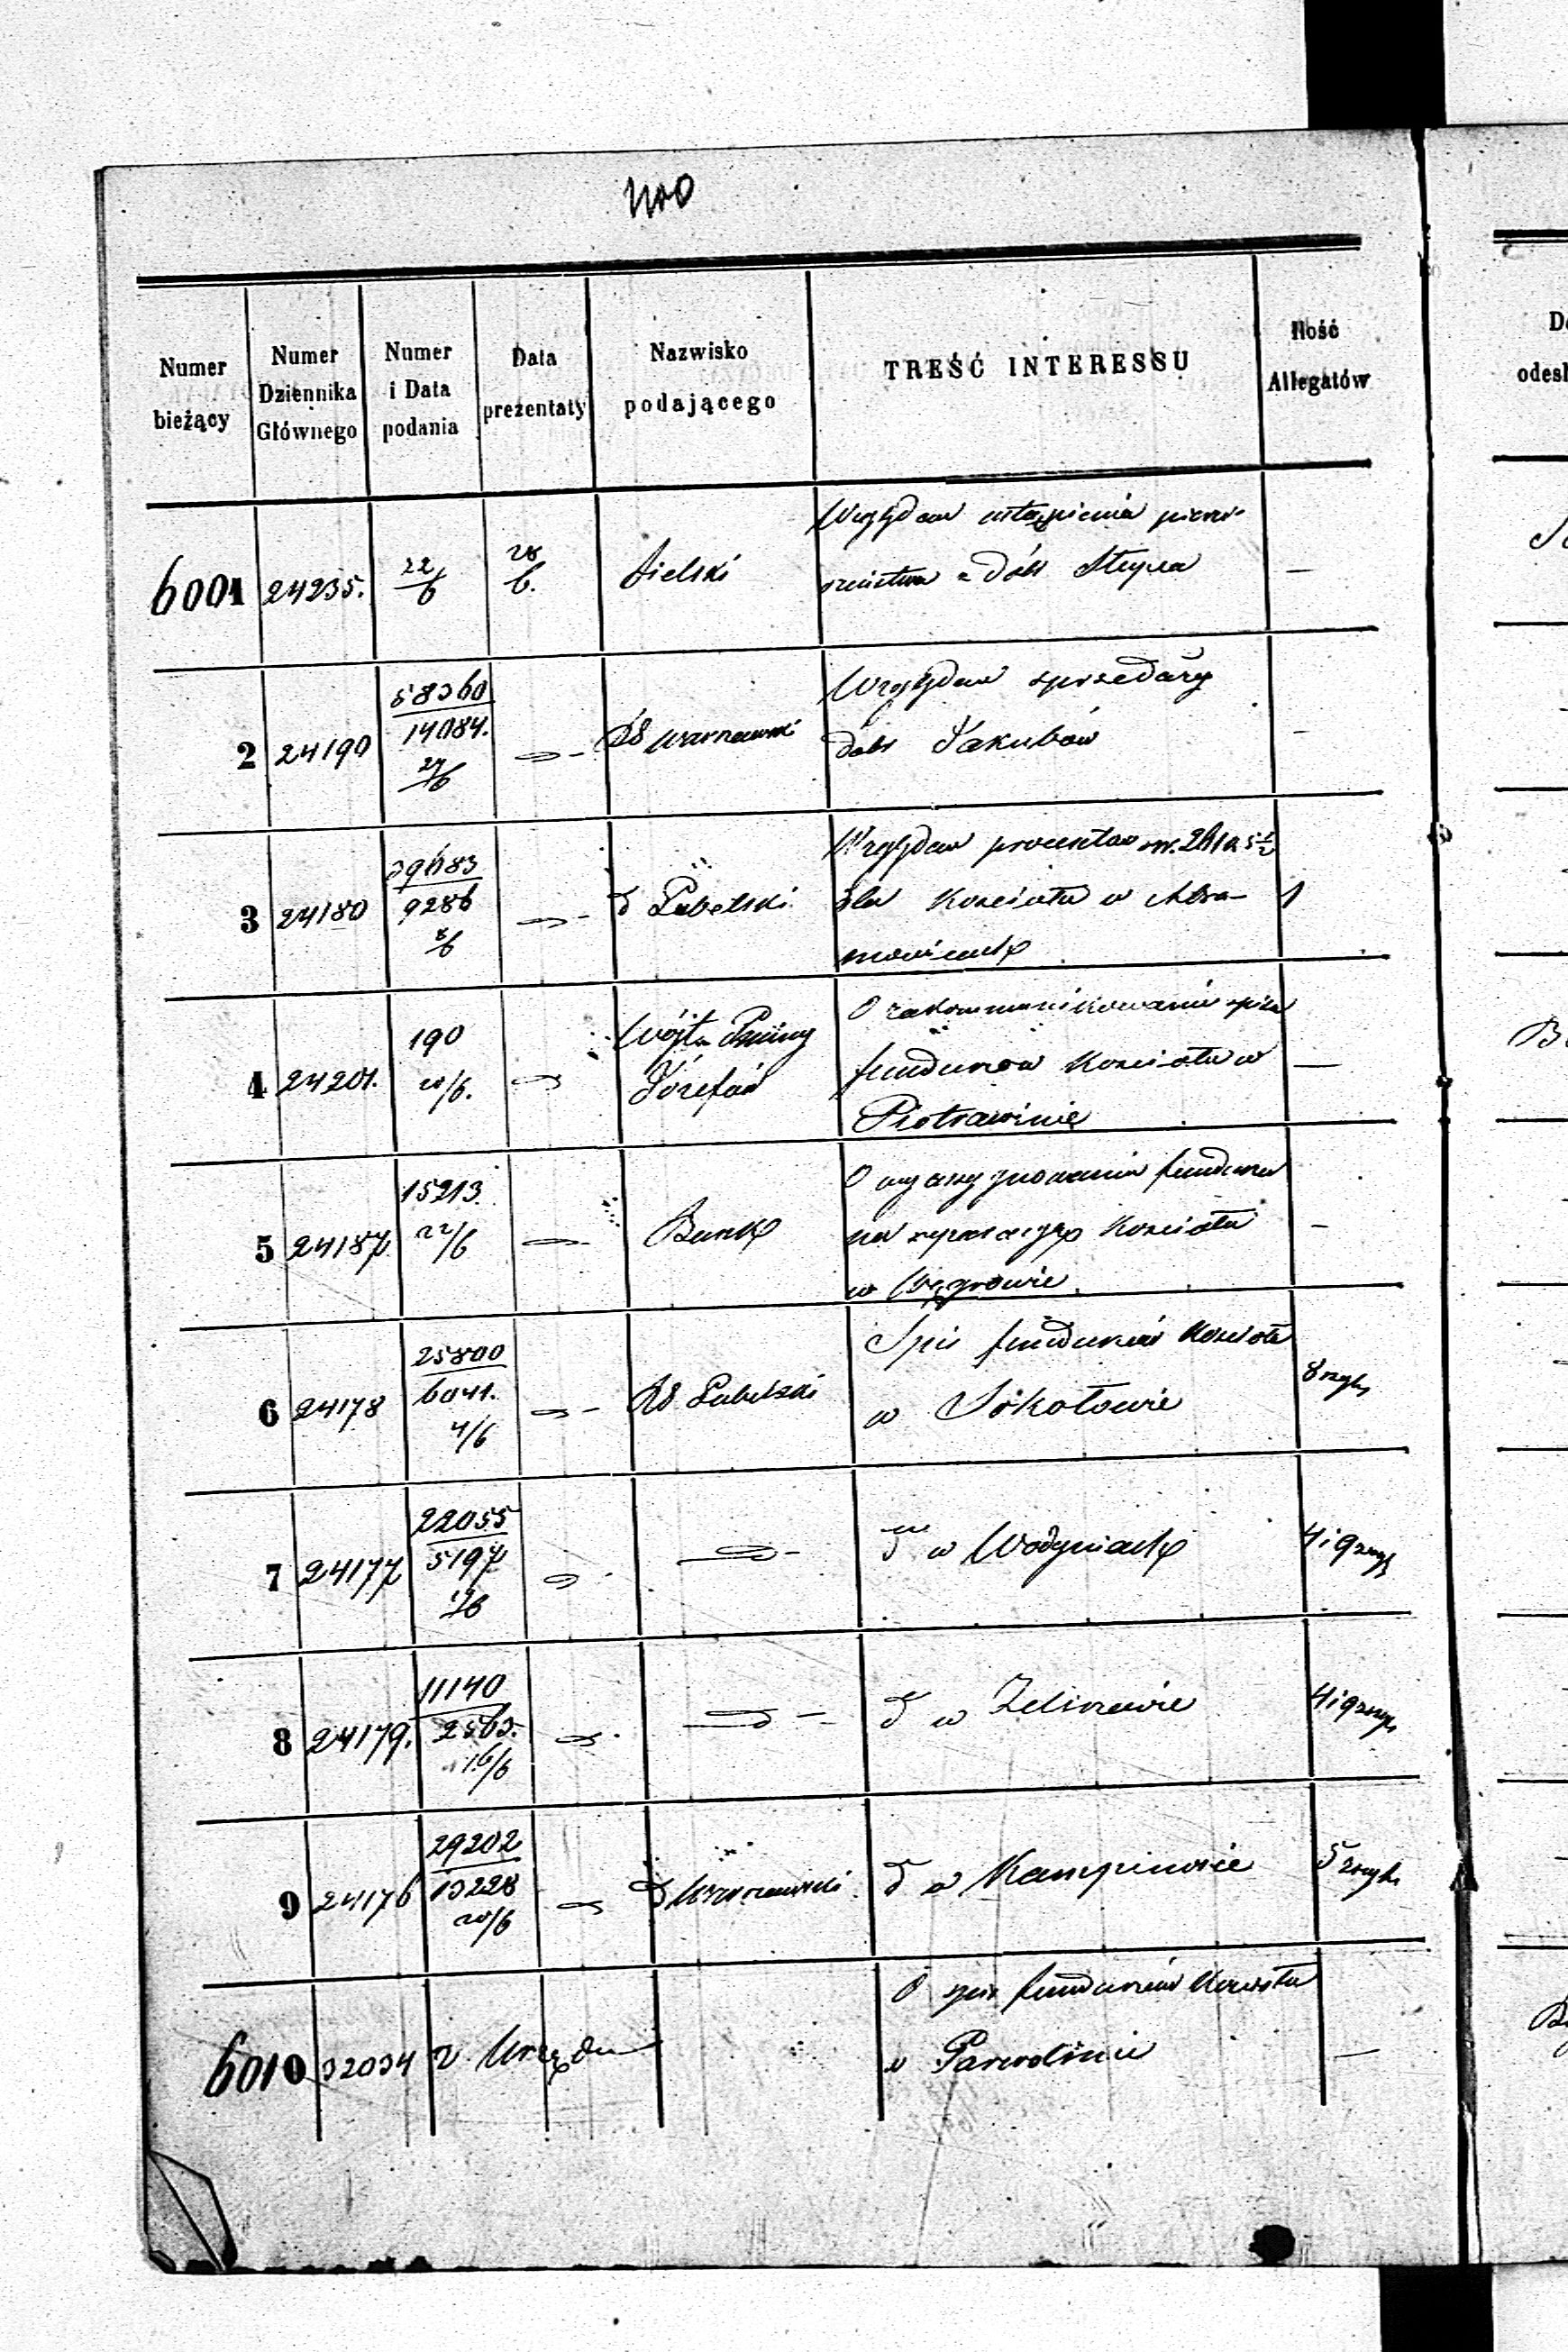 Numer bieżący
Numer Dziennika Głównego
Numer i Data podania
Data prezentaty
Nazwisko podającego
TREŚĆ INTERESSU
Ilość Allegatów
6001 24235. 22/6 28/6. Bielski
Względem ustąpienia pierw-
szeństwa z dóbr Słupca —
2 24190 58360 14084. 27/6 RG Warszawski
Względem sprzedaży
dóbr Jakubów -
3 24180 39683 9286 8/6 d Lubelski
Względem procentów
dla Kościoła w Abra-
mowicach 1
4 24201. 190 20/6. Wójt Gminy
Józefów
O zakommunikowanie spisu
funduszów Kościoła w
Piotrawinie —
5 24187 15213. 22/6 Bank
O wyassygnowanie funduszu
na reparacyę Kościoła
w Węgrowie -
6 24178 25800 6041. 4/6 RG Lubelski
Spis funduszów Kościoła
w Sokołowie 8 zszyt.
7 24177 22055 5197
d w Wodyniach 4 i 9 zszyt
8 24179. 11140 2563. 16/6
d w Zeliszewie 4 i 9 zszyt.
9 24176 29202 13228 20/6 d Warszawski
d w Kampinosie 5 zszyt.
6010 32034 z Urzędu
O spis funduszów Kościoła
w Parwolinie —